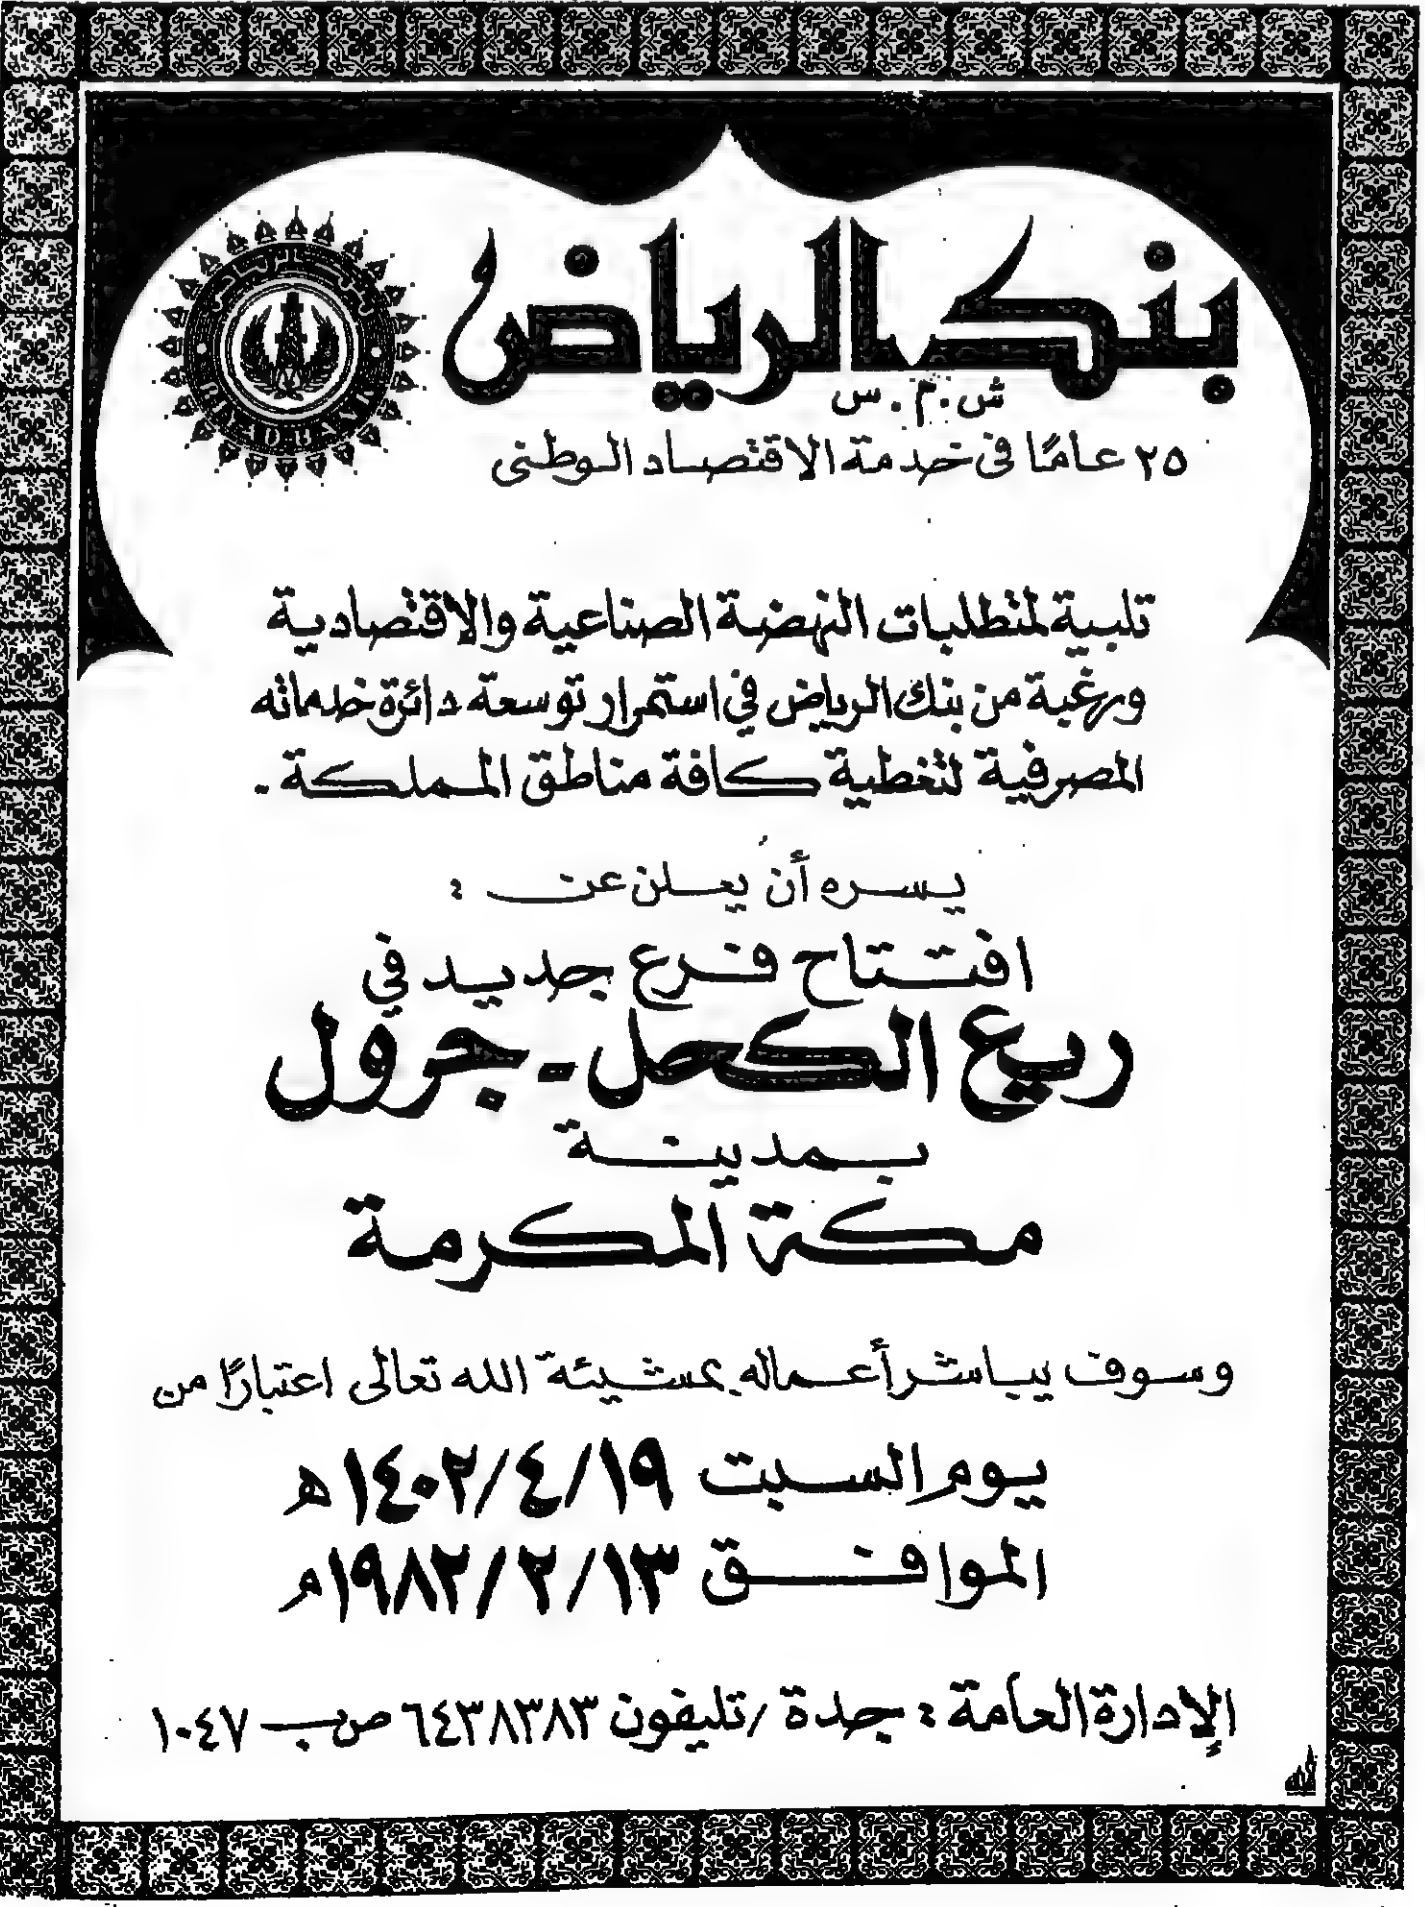 بنك الرياض
ش.م.س
٢٥ عامًا في خدمة الاقتصاد الوطني
RIYAD BANK
تلبية لمتطلبات النهضة الصناعية والاقتصادية
ورغبة من بنك الرياض في استمرار توسعة دائرة خدماته
المصرفية لتغطية كافة مناطق المملكة .
يسره أن يعلن عن :
افتتاح فرع جديد في
ريع الكحل - جرول
بمدينة
مكة المكرمة
وسوف يباشر أعماله بمشيئة الله تعالى اعتبارًا من
يوم السبت ١٤٠٢/٤/١٩ هـ
الموافق ١٩٨٢/٢/١٣ م
الإدارة العامة : جدة / تليفون ٦٤٣٨٣٨٣ ص ب ١٠٤٧